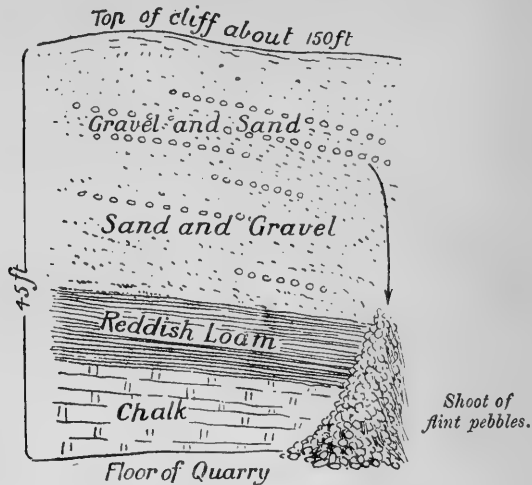 Top of cliff about 150ft
Gravel and Sand
Sand and Gravel
45ft
Reddish Loam
Chalk
Shoot of
flint pebbles.
Floor of Quarry